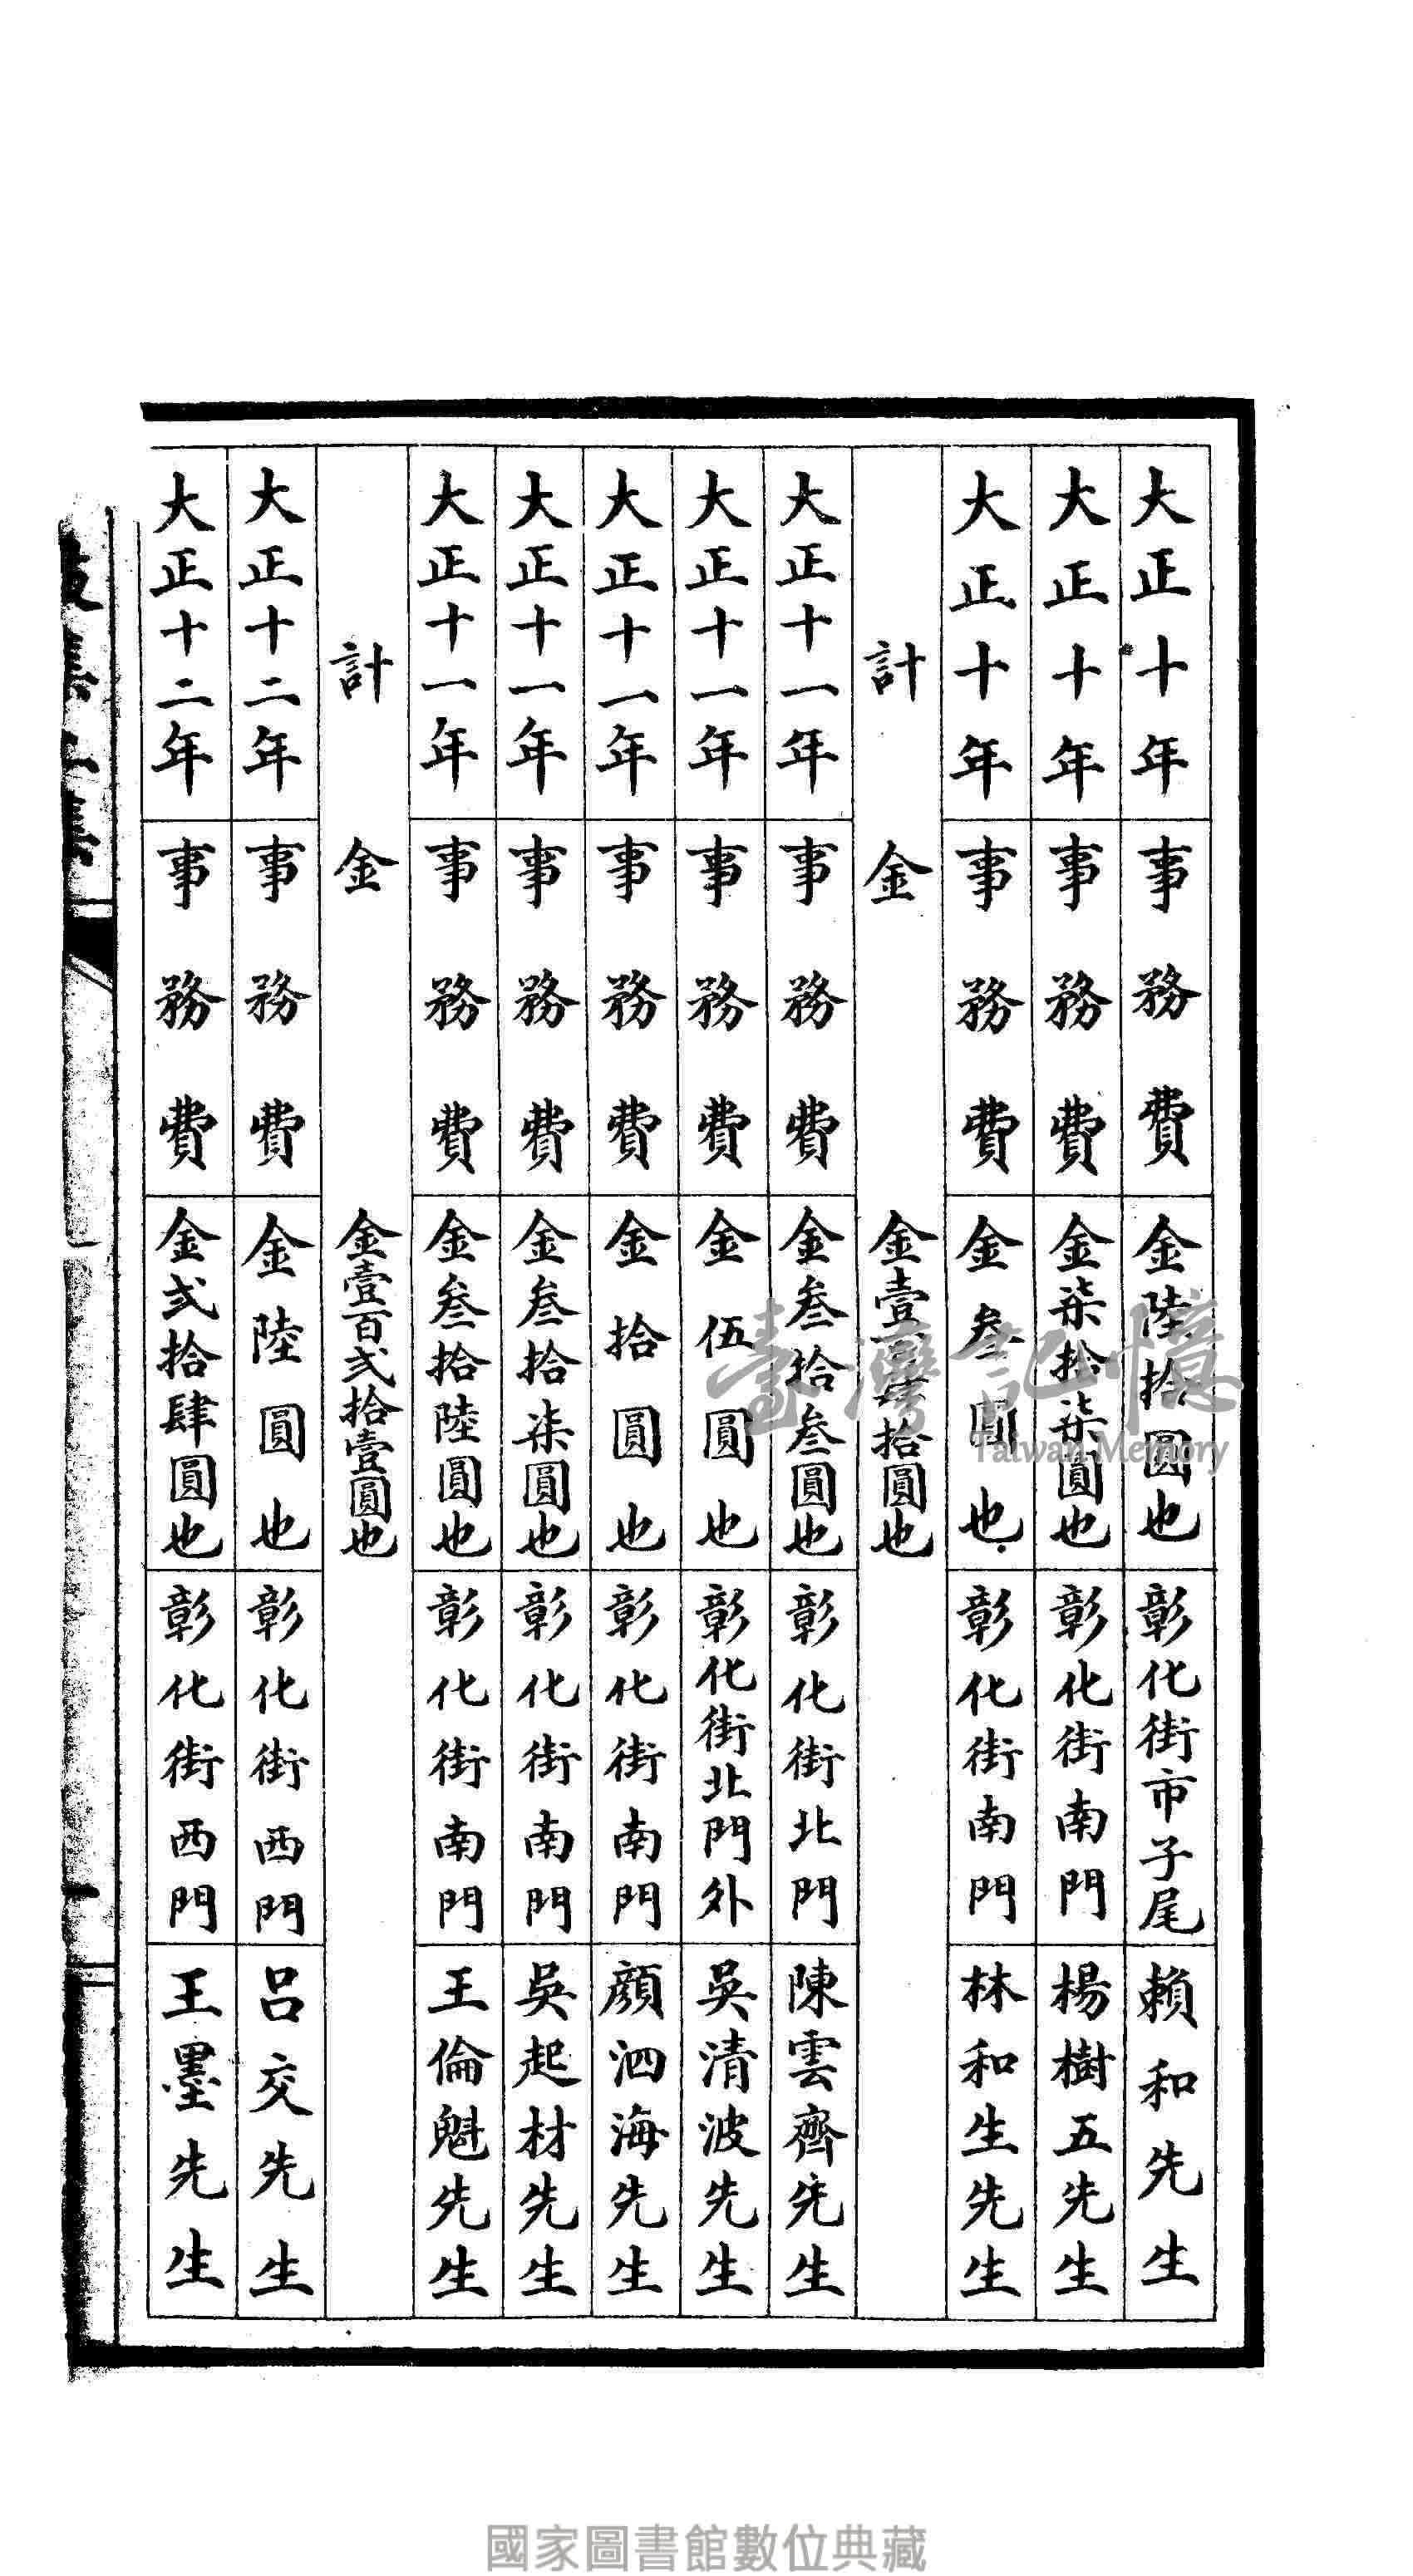 大正十年 事務費 金陸拾圓也 彰化街市子尾 賴和先生
大正十年 事務費 金柒拾柒圓也 彰化街南門 楊樹五先生
大正十年 事務費 金叁圓也 彰化街南門 林和生先生
計 金 金壹百肆拾圓也
大正十一年 事務費 金叁拾叁圓也 彰化街北門 陳雲齊先生
大正十一年 事務費 金伍圓也 彰化街北門外 吳清波先生
大正十一年 事務費 金拾圓也 彰化街南門 顏泗海先生
大正十一年 事務費 金叁拾柒圓也 彰化街南門 吳起材先生
大正十一年 事務費 金叁拾陸圓也 彰化街南門 王倫魁先生
計 金 金壹百弍拾壹圓也
大正十二年 事務費 金陸圓也 彰化街西門 呂交先生
大正十二年 事務費 金弍拾肆圓也 彰化街西門 王墨先生
臺灣記憶
Taiwan Memory
國家圖書館數位典藏